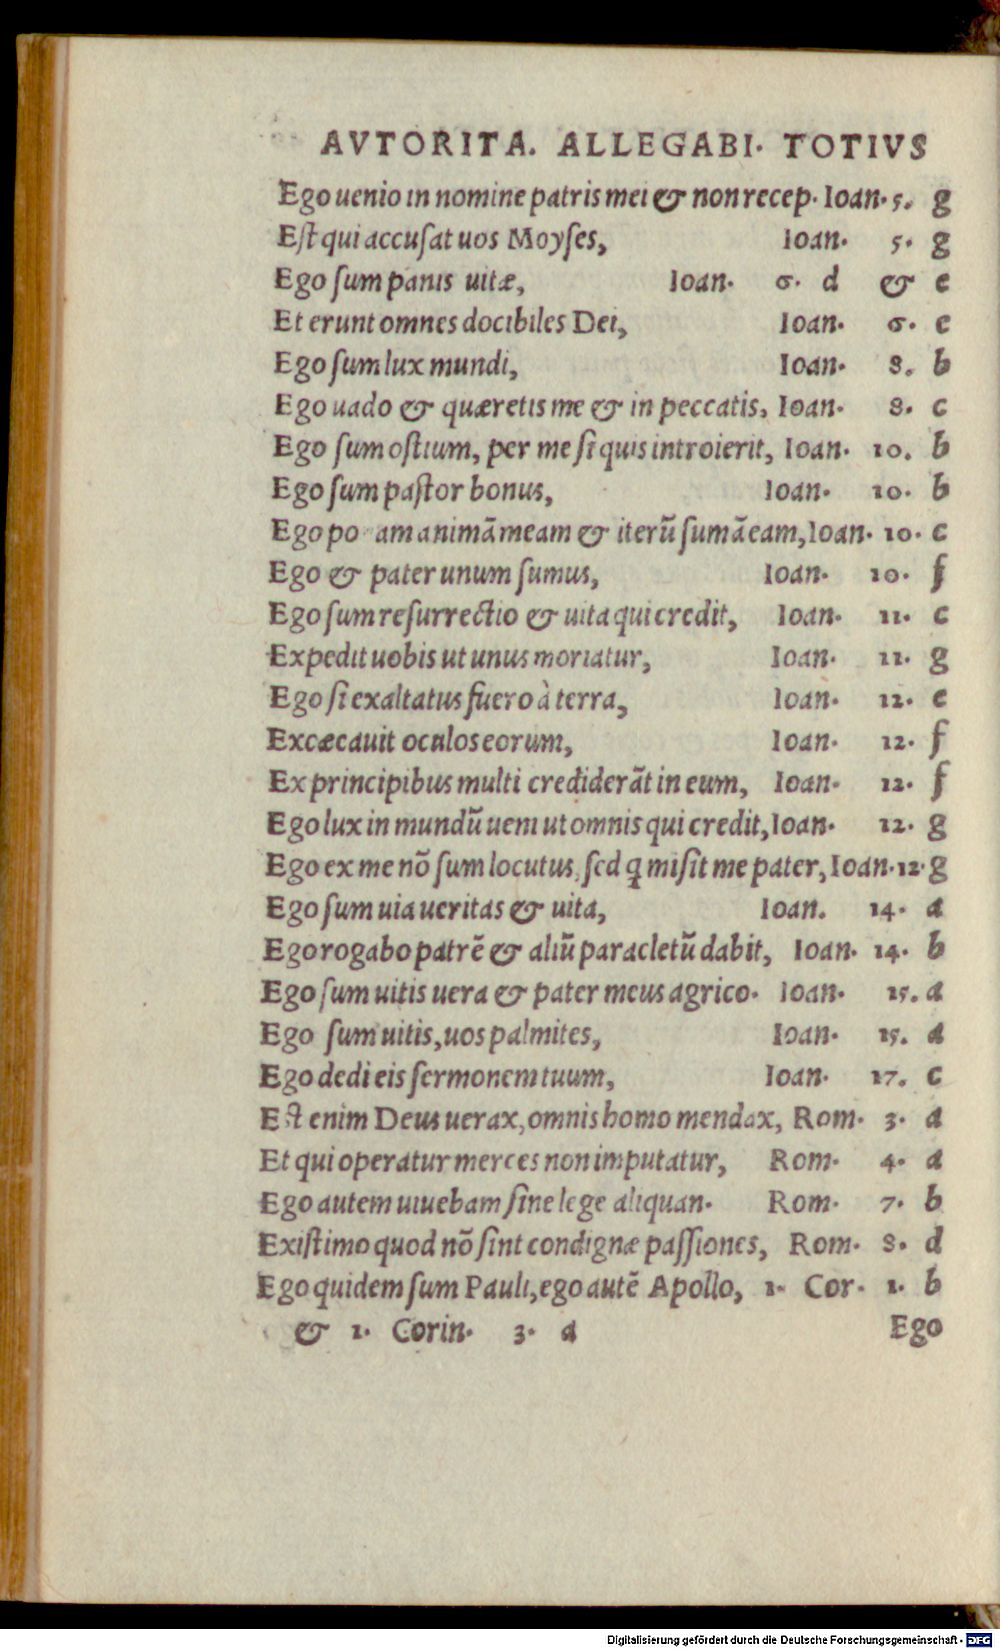 AVTORITA. ALLEGABI. TOTIVS
Ego uenio in nomine patris mei & non recep. Ioan. 5. g
Eſt qui accuſat uos Moyſes, Ioan. 5. g
Ego ſum panis uitæ, Ioan. 6. d & e
Et erunt omnes docibiles Dei, Ioan. 6. e
Ego ſum lux mundi, Ioan. 8. b
Ego uado & quæretis me & in peccatis, Ioan. 8. c
Ego ſum oſtium, per me ſi quis introierit, Ioan. 10. b
Ego ſum paſtor bonus, Ioan. 10. b
Ego po am animā meam & iterū ſumā eam, Ioan. 10. c
Ego & pater unum ſumus, Ioan. 10. f
Ego ſum reſurrectio & uita qui credit, Ioan. 11. c
Expedit uobis ut unus moriatur, Ioan. 11. g
Ego ſi exaltatus fuero à terra, Ioan. 12. e
Excæcauit oculos eorum, Ioan. 12. f
Ex principibus multi crediderāt in eum, Ioan. 12. f
Ego lux in mundū ueni ut omnis qui credit, Ioan. 12. g
Ego ex me nō ſum locutus, ſed ꝗ miſit me pater, Ioan. 12. g
Ego ſum uia ueritas & uita, Ioan. 14. a
Ego rogabo patrē & aliū paracletū dabit, Ioan. 14. b
Ego ſum uitis uera & pater meus agrico. Ioan. 15. a
Ego ſum uitis, uos palmites, Ioan. 15. a
Ego dedi eis ſermonem tuum, Ioan. 17. c
Eſt enim Deus uerax, omnis homo mendax, Rom. 3. a
Et qui operatur merces non imputatur, Rom. 4. a
Ego autem uiuebam ſine lege aliquan. Rom. 7. b
Exiſtimo quod nō ſint condignæ paſſiones, Rom. 8. d
Ego quidem ſum Pauli, ego autē Apollo, 1. Cor. 1. b
& 1. Corin. 3. a Ego
Digitalisierung gefördert durch die Deutsche Forschungsgemeinschaft - DFG